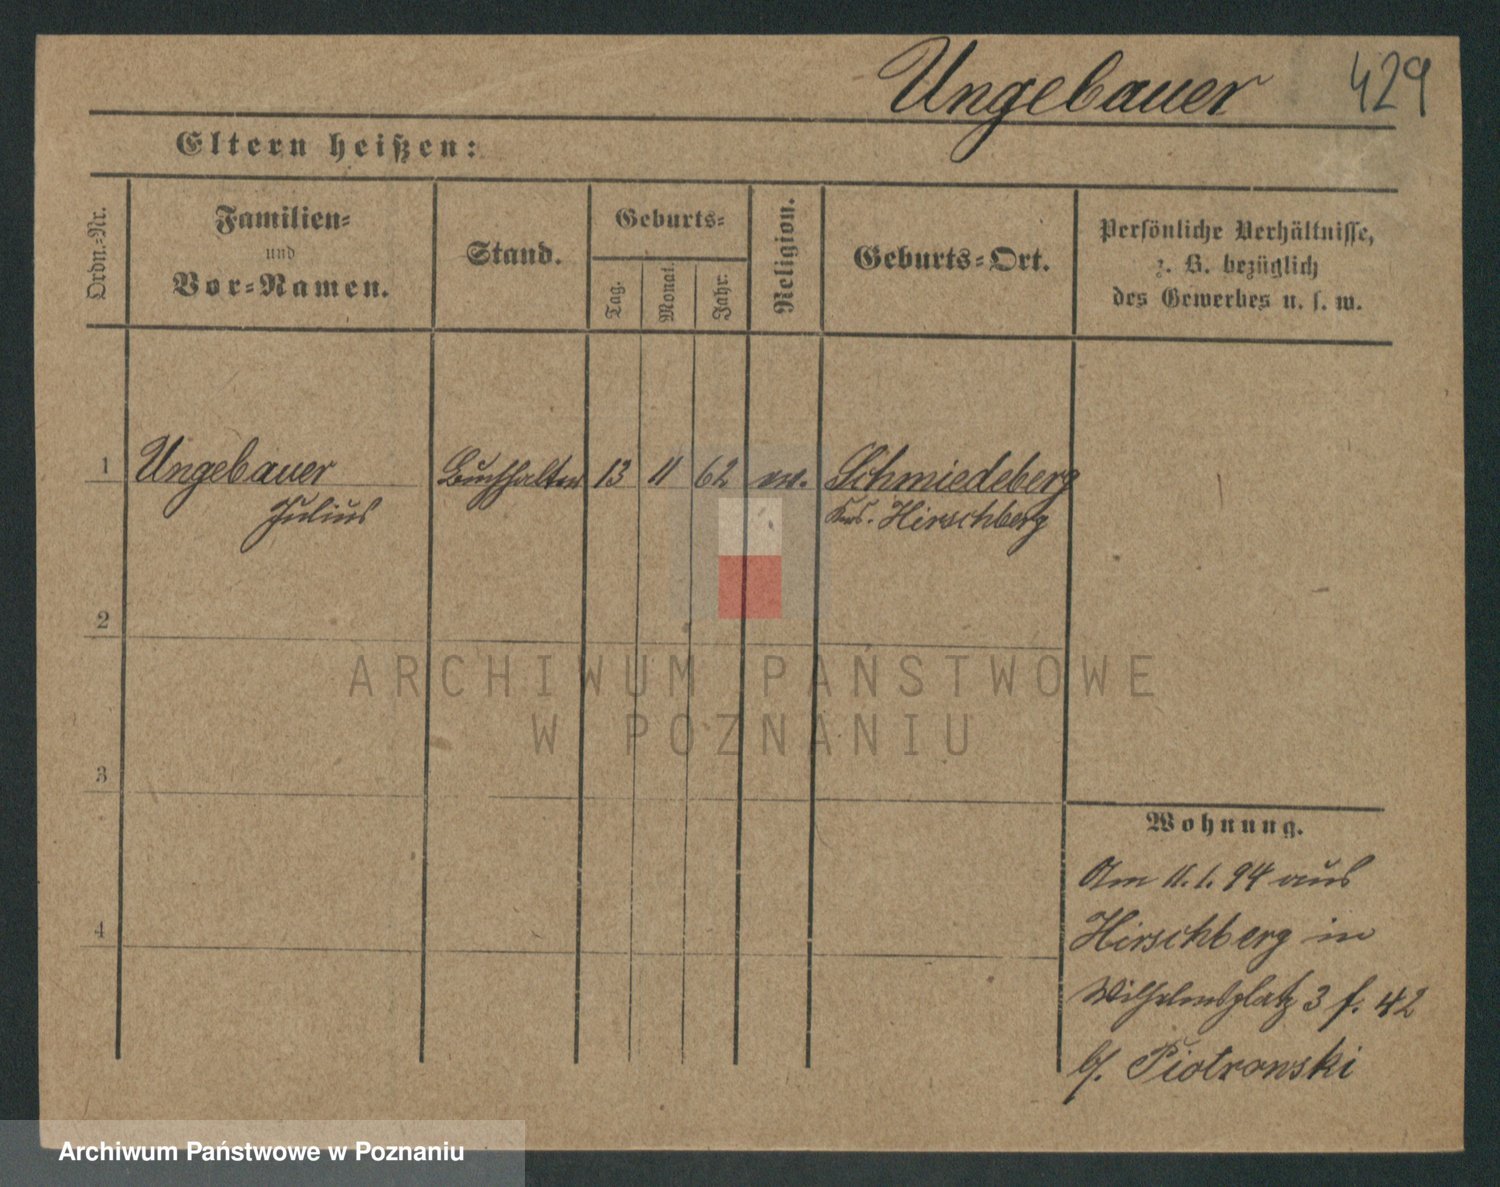 Ungebauer 429
Eltern heißen:
Ordn.-Nr.
Familien-
und
Vor-Namen.
Stand.
Geburts-
Tag.
Monat.
Jahr.
Religion.
Geburts-Ort.
Persönliche Verhältnisse,
z. B. bezüglich
des Gewerbes u. s. w.
1 Ungebauer Buchhalter 13 11 62 ev. Schmiedeberg
Julius Krs. Hirschberg
2
3
4
Wohnung.
Am 11.1.94 aus
Hirschberg in
Wilhelmsplatz 3 f. 42
b/. Piotrowski
ARCHIWUM PAŃSTWOWE
W POZNANIU
Archiwum Państwowe w Poznaniu